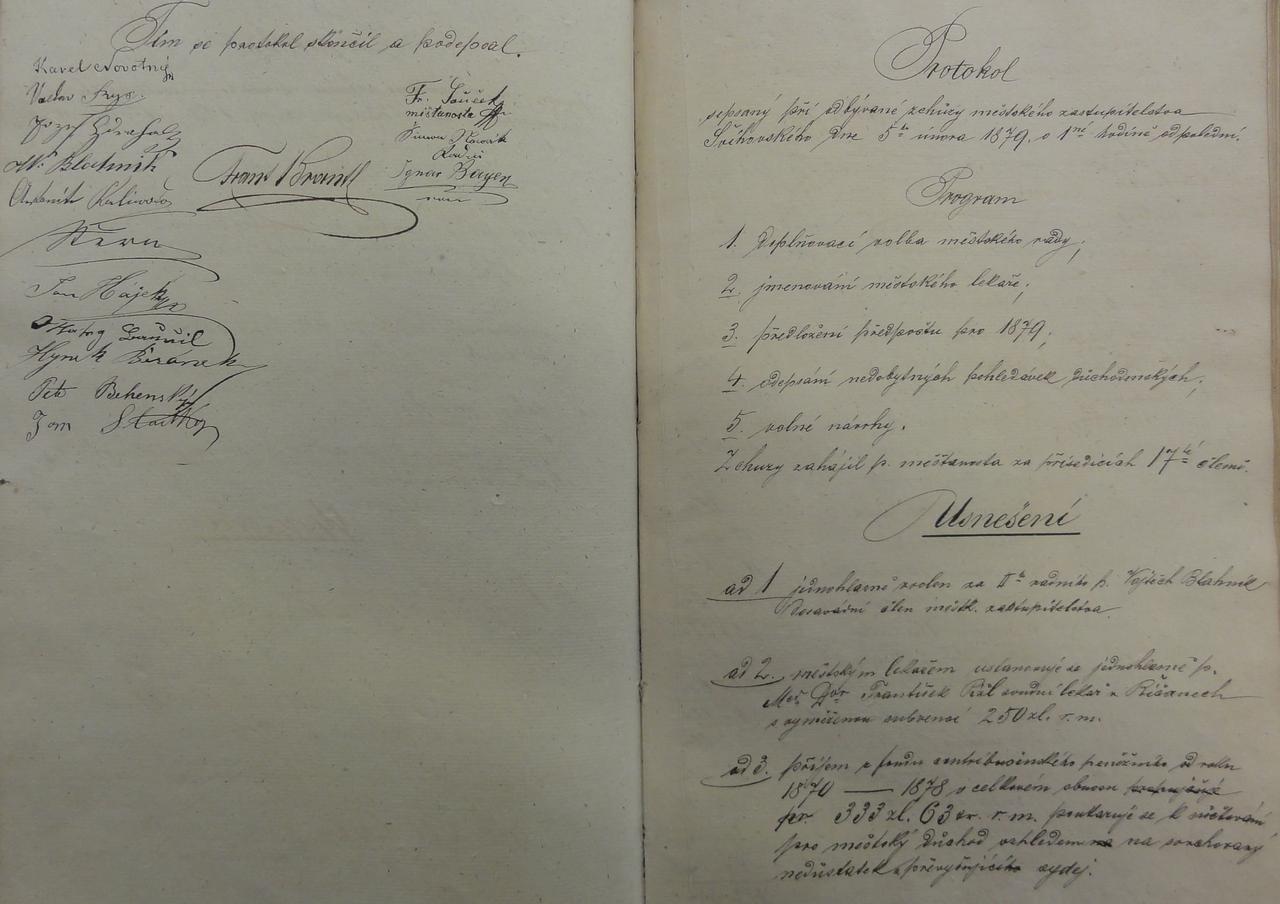 Tím se protokol skončil a podepsal.
Karel Novotný
Václav
Josef
Blahník
Antonín
Stern
Jan Hájek
Hynek Beránek
Petr Běhenský
Jan
Frant
Fr. Souček
měšťanosta
Šimon Novák
Radní
Ignác
Protokol
sepsaný při odbývané schůzy městského zastupitelstva
Říčkovského dne 5ho února 1879. o 1ní hodině odpolední.
Program
1. Doplňovací volba městského rady;
2. jmenování městského lekaře;
3. předložení předpočtu pro 1879;
4. odepsání nedobytných pohledávek důchodenských;
5. volné návrhy.
Schuzy zahájil p. měšťanosta za přísedících 17ti členů.
Usnešení
ad 1 jednohlasně zvolen za IIho radního p. Vojtěch Blahník
dosavádní člen městk. zastupitelstva.
ad 2. městským lekařem ustanovuje se jednohlasně p.
Med Dor František soudní lekař v Říčanech
s vyměřenou subvencí 250 zl. r. m.
ad 3. příjem z fondu contribučenského peněžního od roku
1870 — 1878 v celkovém obnosu
pr. 333 zl. 63 kr. r. m. poukazuje se k účtování
pro městský důchod vzhledem na na
nedostatek převyšujícího vydej.